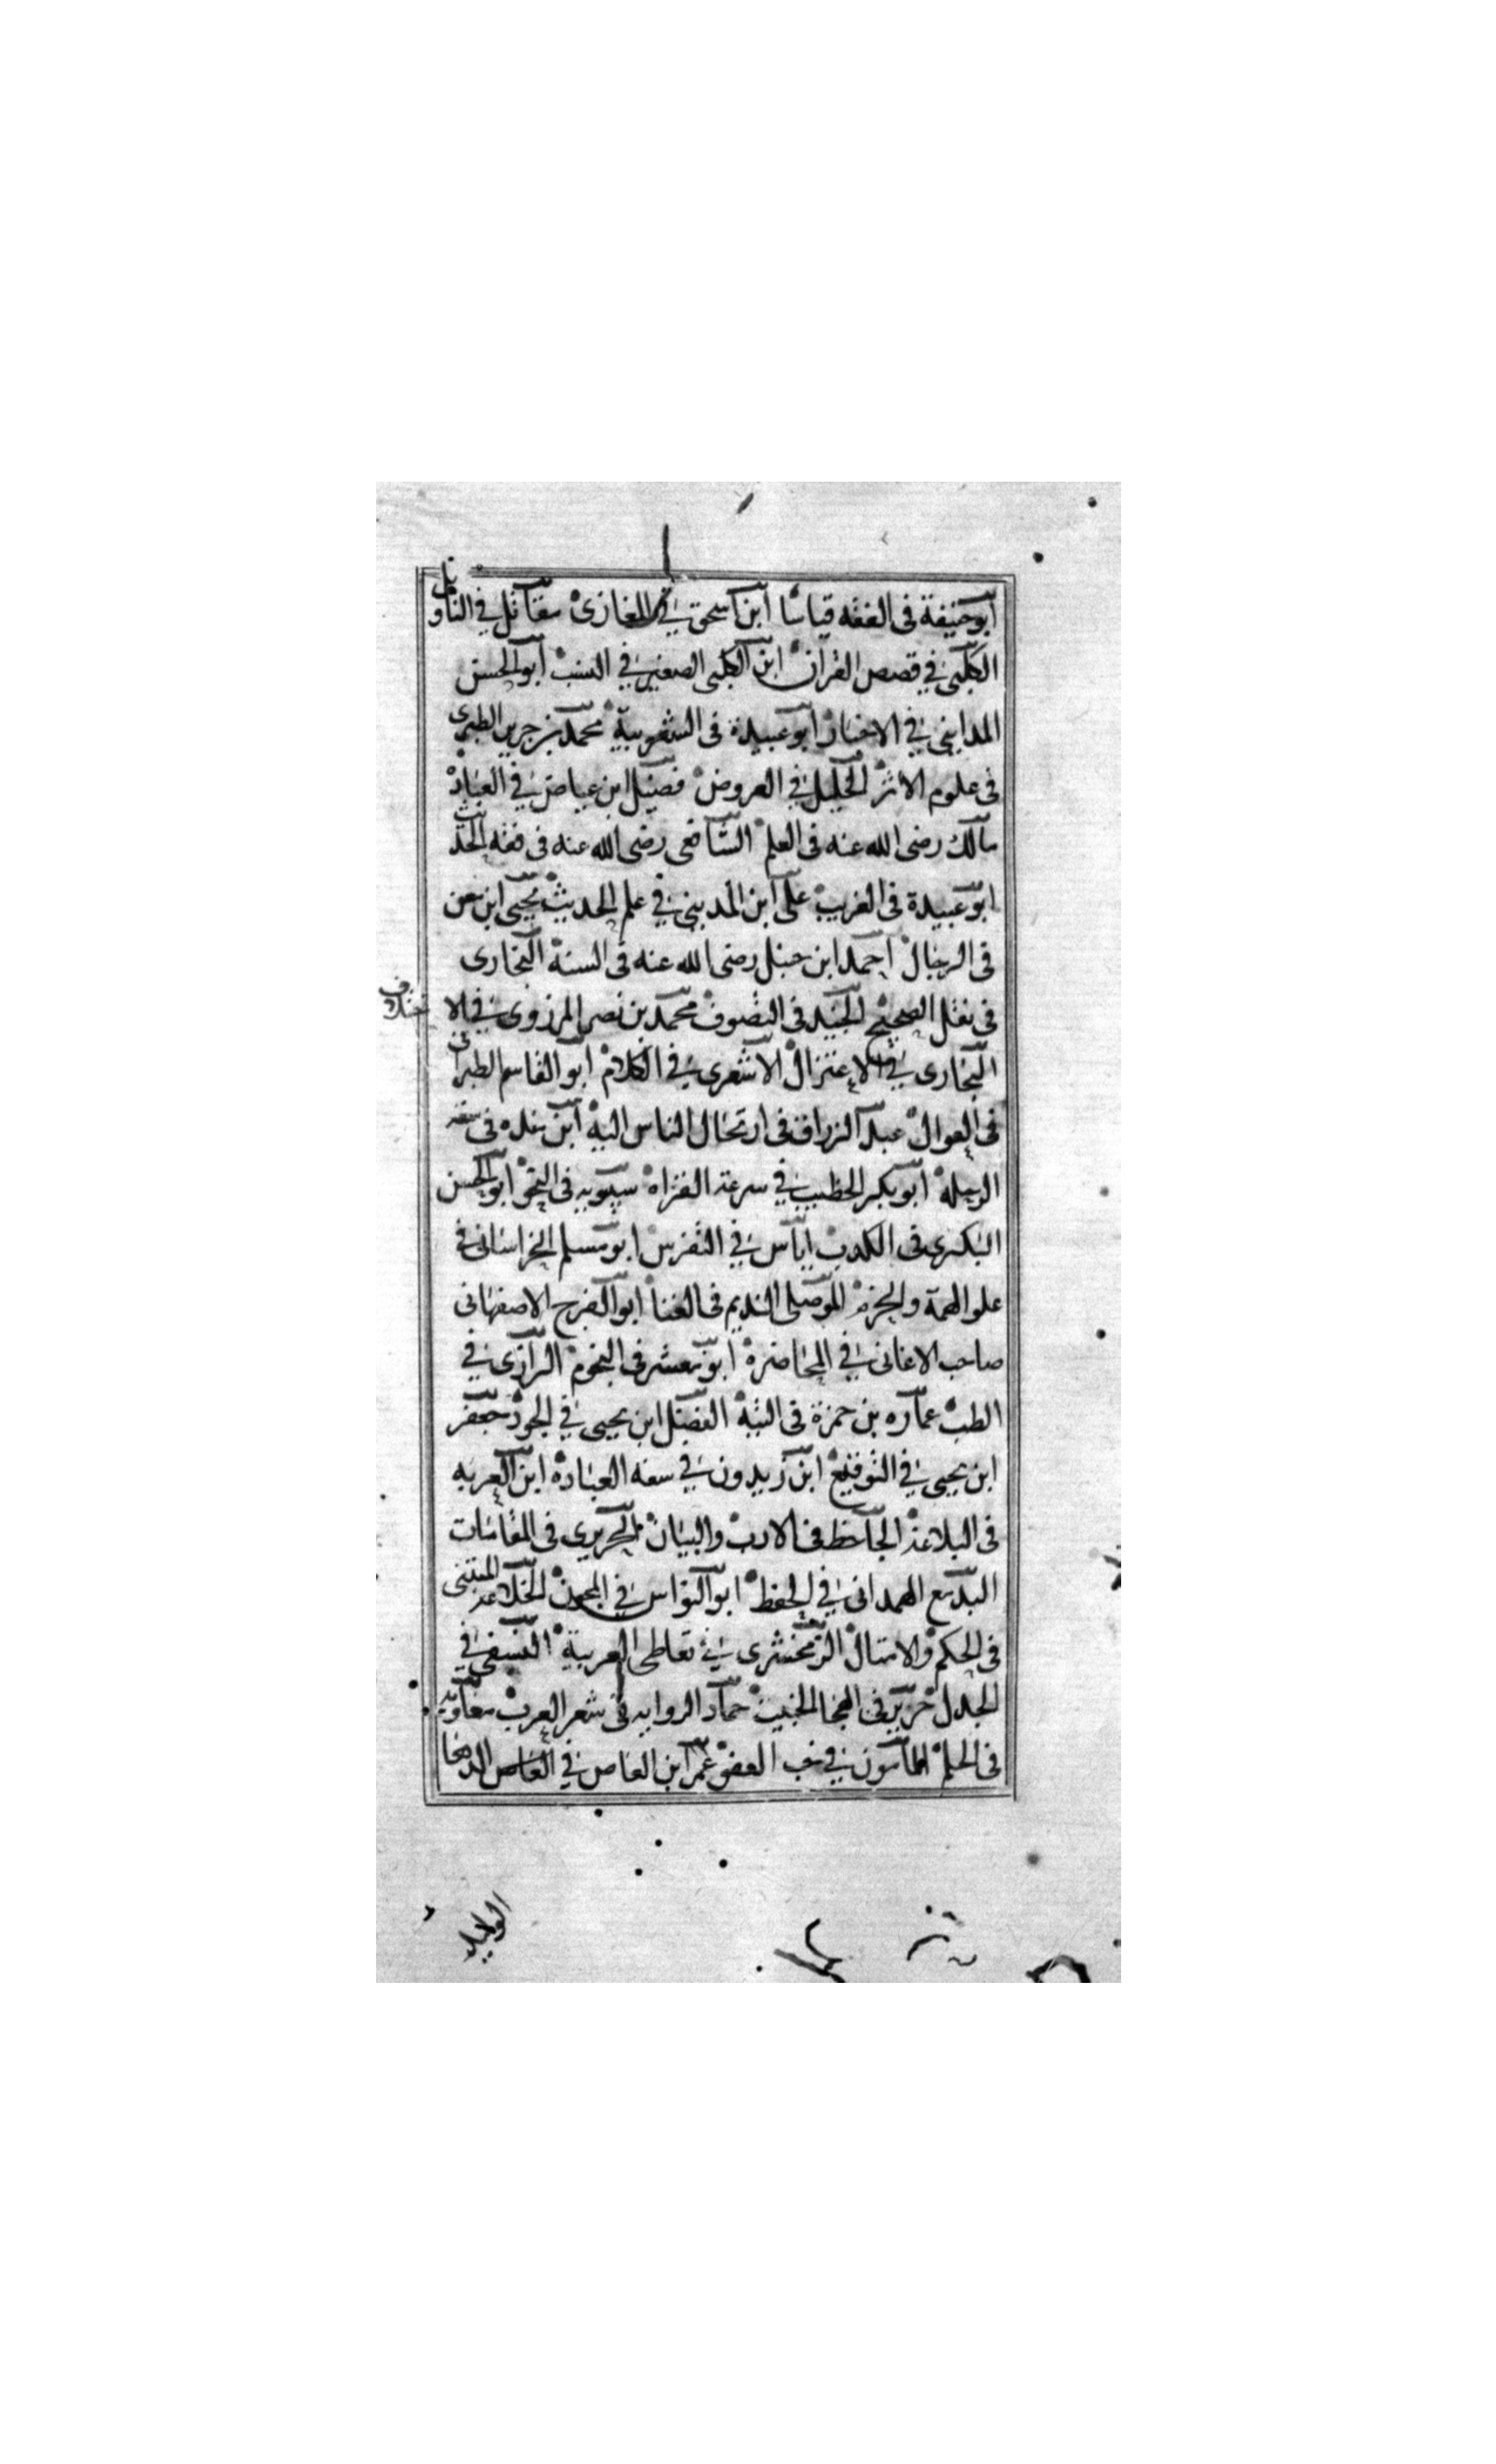 ابو حنيفة فى الفقه قياسا ابن اسحق فى المغازى مقاتل في التاويل
الكلبى في قصص القرآن ابن الكلبى الصغير في النسب ابو الحسن
المداينى في الاخبار ابو عبيدة فى الشعوبية محمد بن جرير الطبرى
فى علوم الاثر الخليل في العروض فضيل ابن عياض في العباد
مالك رضى الله عنه فى العلم الشافعى رضى الله عنه فى فقه الحديث
ابو عبيدة فى الغريب على ابن المدينى في علم الحديث يحيى ابن معن
فى الرجال احمد ابن حنبل رضى الله عنه فى السنة البخارى
فى نقل الصحيح الجنيد فى التصوف محمد بن نصر المرزوى في الا
ختلاف
البخارى في الاعتزال الاشعرى في الكلام ابو القاسم الطبرانى
فى العوال عبد الرزاق فى ارتحال الناس اليه ابن منده فى سعة
الرحلة ابو بكر الخطيب في سرعة القراه سيبويه فى النحو ابو الحسن
البكرى فى الكدب اياس في التفرس ابو مسلم الخراسانى فى
علو الهمة والحزم الموصلى النديم فى الغنا ابو الفرج الاصفهانى
صاحب الاغانى في المحاضرة ابو معشر فى النجوم الرازى في
الطب عماره بن حمزة فى التيه الفضل ابن يحيى في الجود جعفر
ابن يحيى في التوقيع ابن زيدون في سعه العبادة ابن العربه
فى البلاغة الجاحظ فى الادب والبيان الحريرى فى المقامات
البديع الهمدانى في الحفظ ابو النواس في المجون المتنبى
فى الحكم والامتال الزمخشرى في تعاطى العربية النسفى في
الجدل جرير فى الهجا الخبيث حماد الروايه فى شعر العرب معاويه
فى الحلم المامون في حب العفو عمر ابن العاص في
الوليد